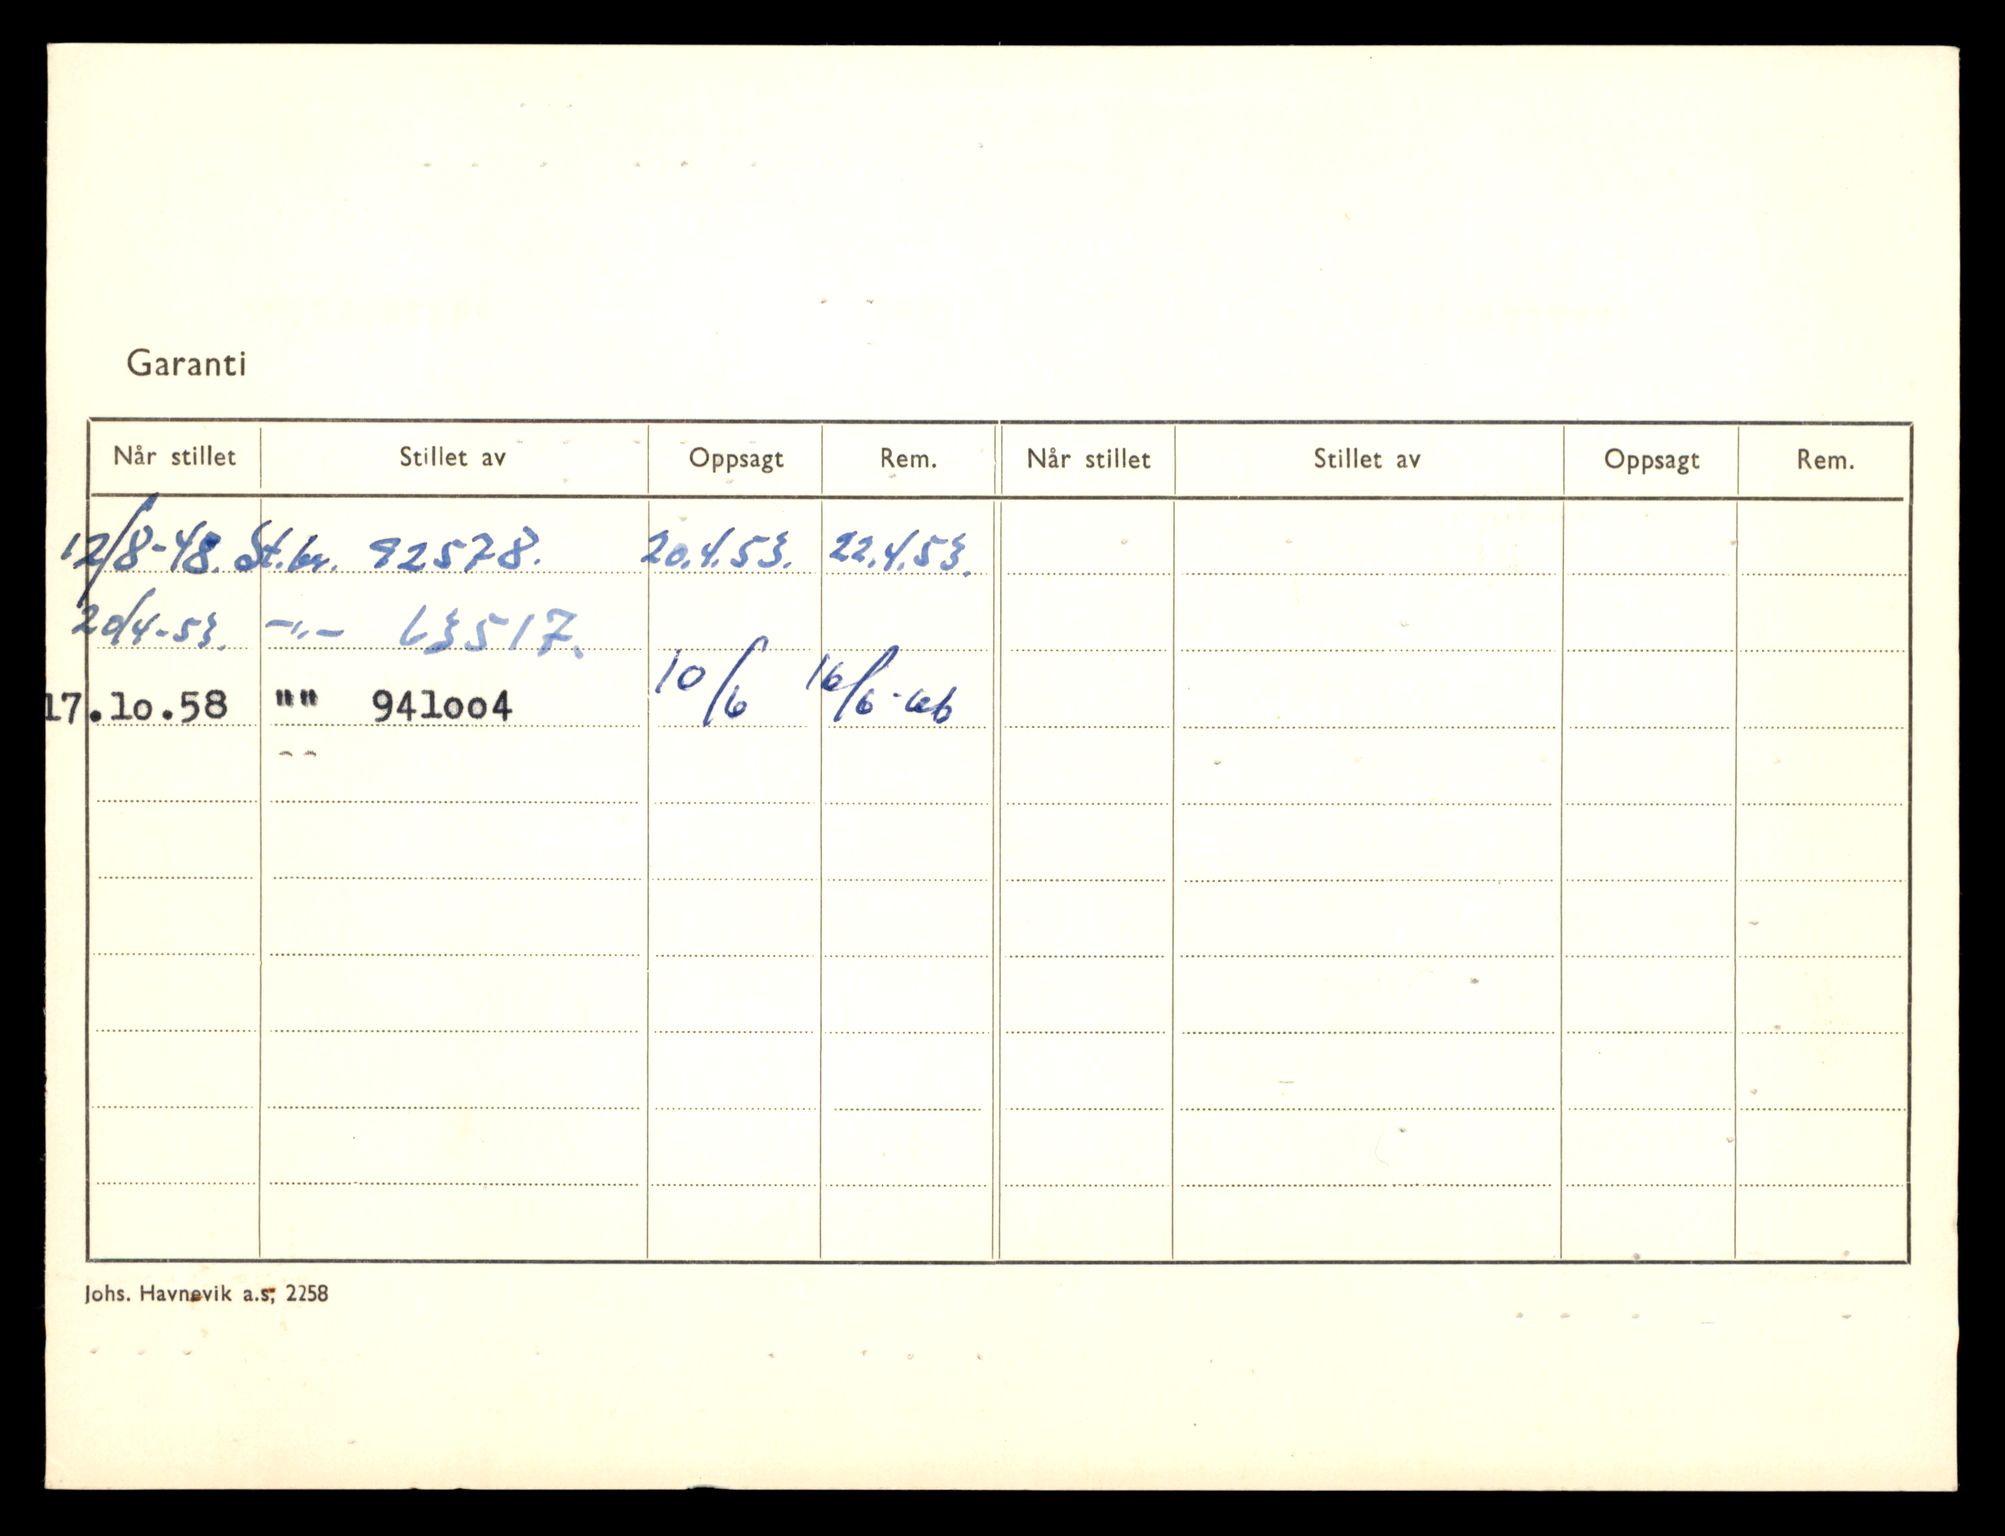 Garanti
Når stillet Stillet av Oppsagt Rem. Når stillet Stillet av Oppsagt Rem.
12/8-48. St.br. 92578. 20.4.53. 22.4.53.
20/4-53. -"- 63517.
17.lo.58 "" 941oo4 10/6 16/6-66
Johs. Havnevik a.s, 2258